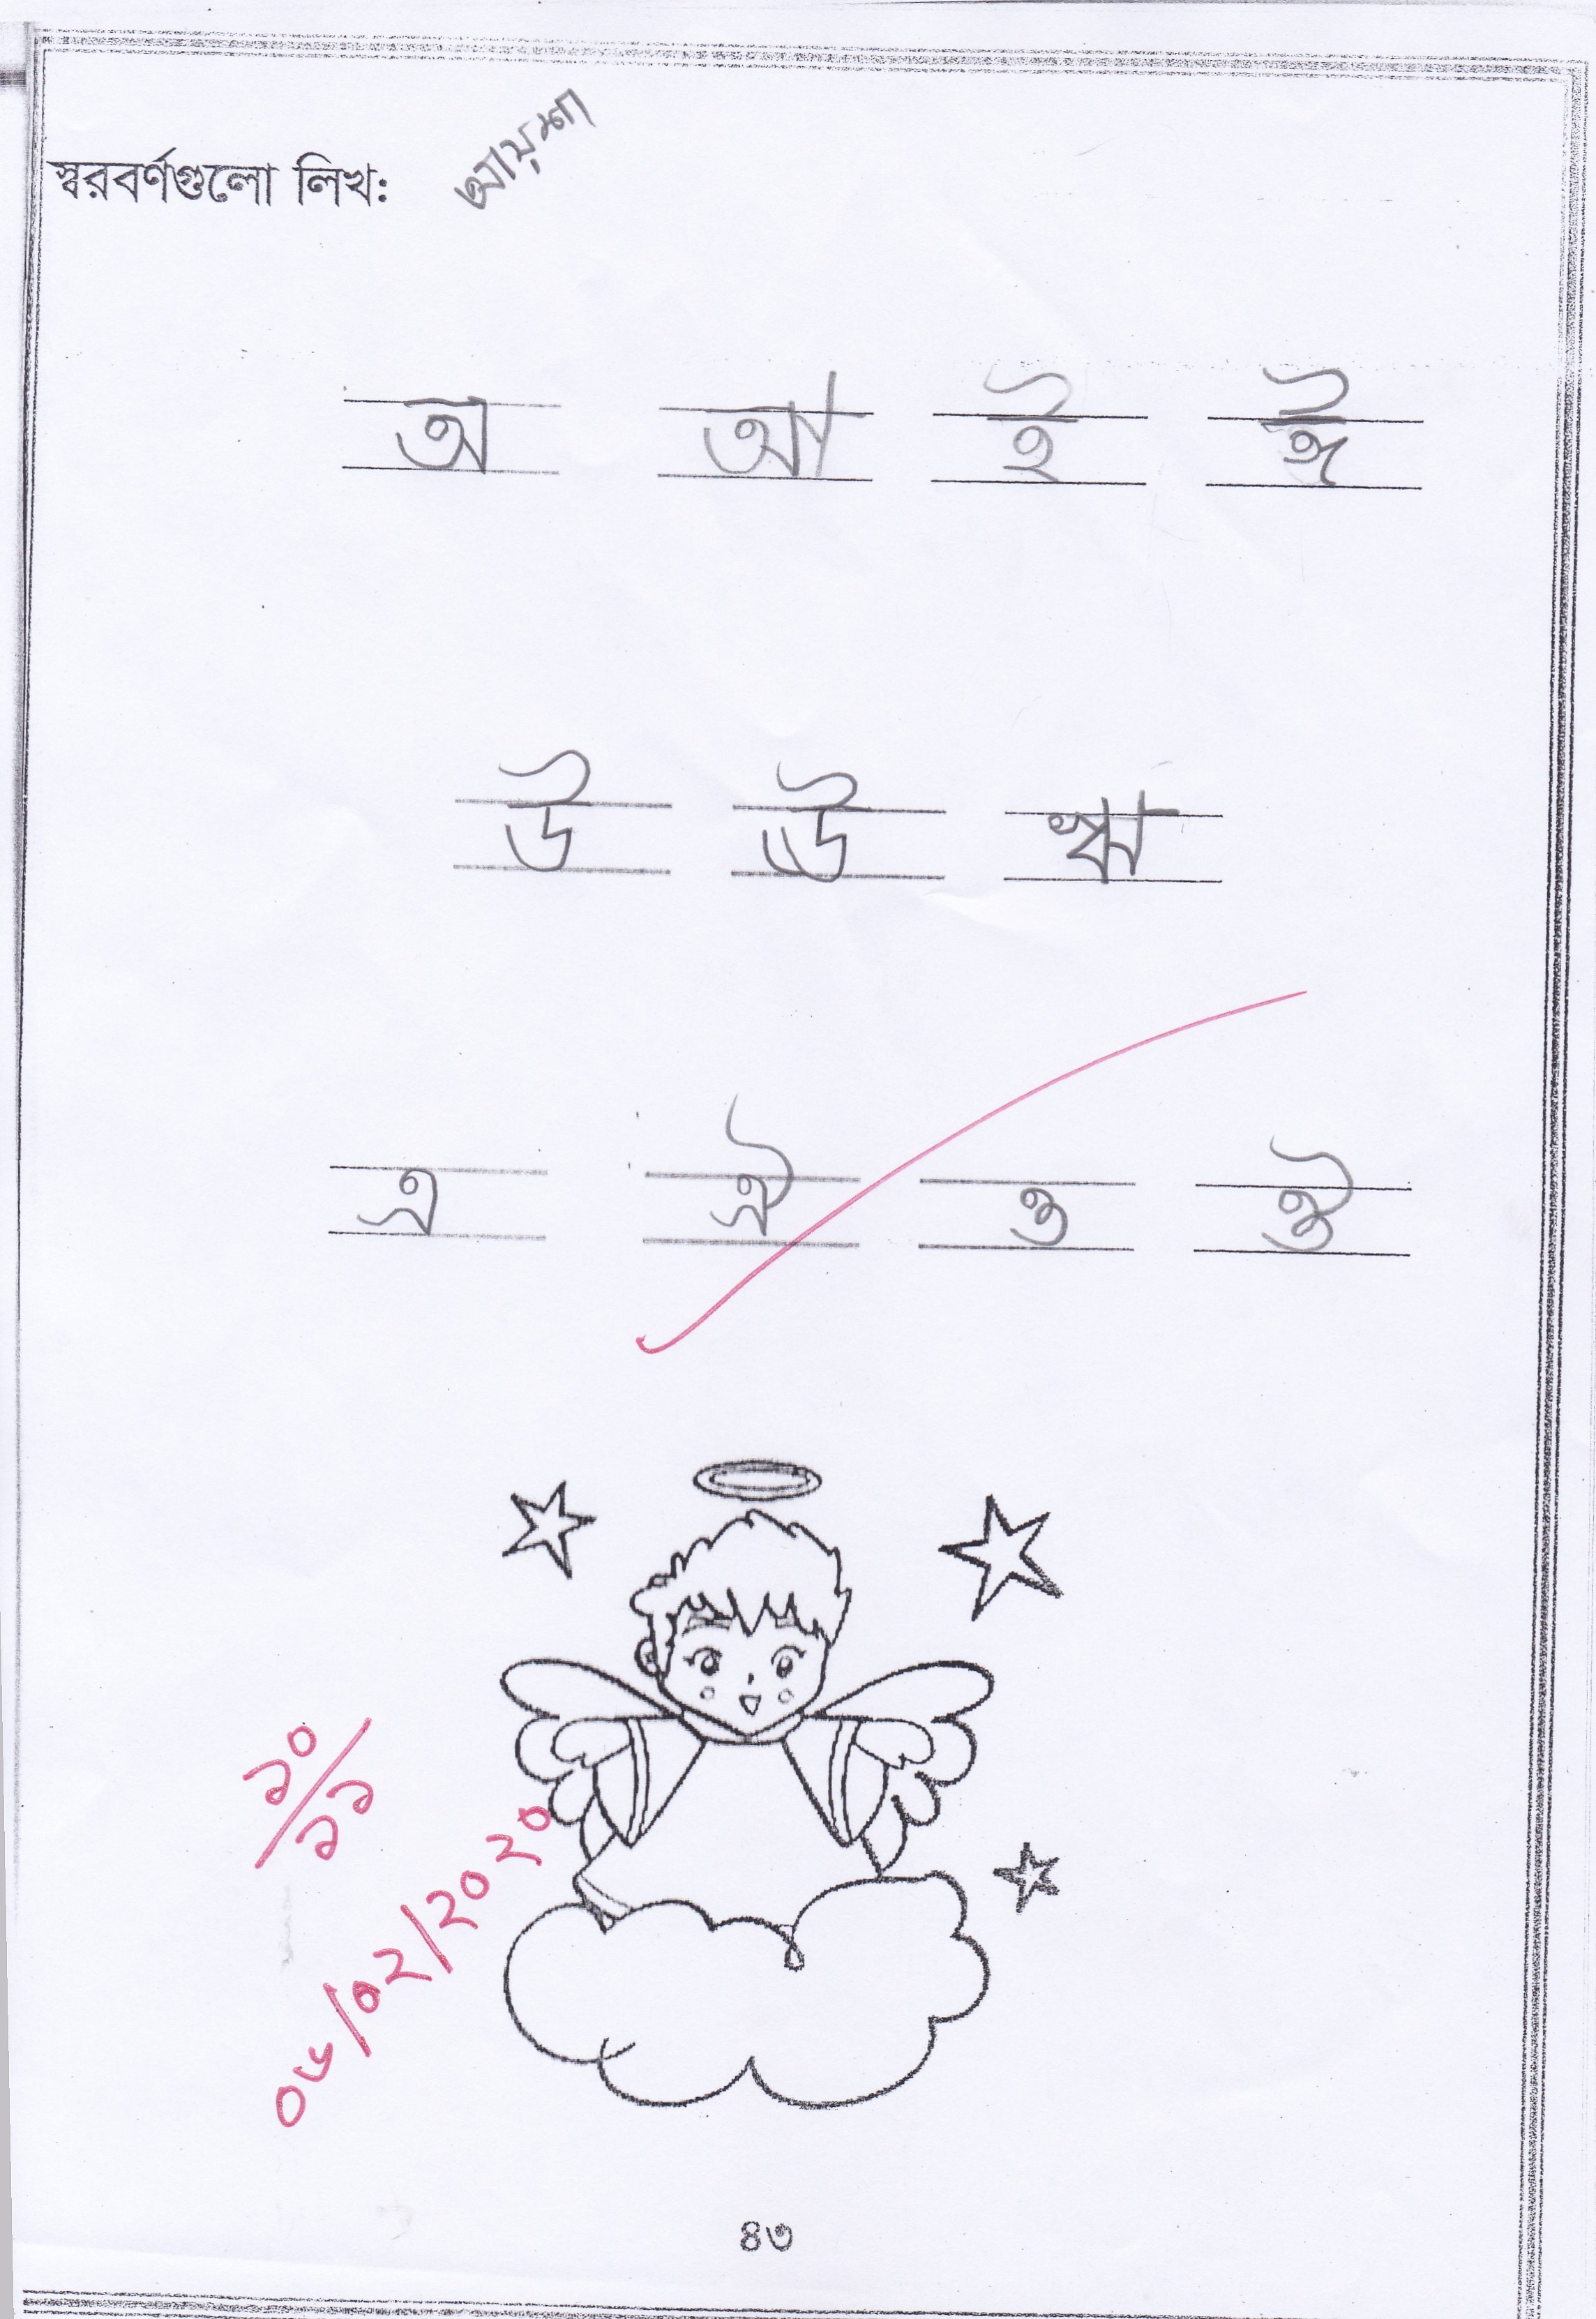 স্বরবর্ণগুলো লিখ: আয়শা
অ আ ই ঈ
উ ঊ ঋ
এ ঐ ও ঔ
১০/১১
০৬/০২/২০২০
৪৩